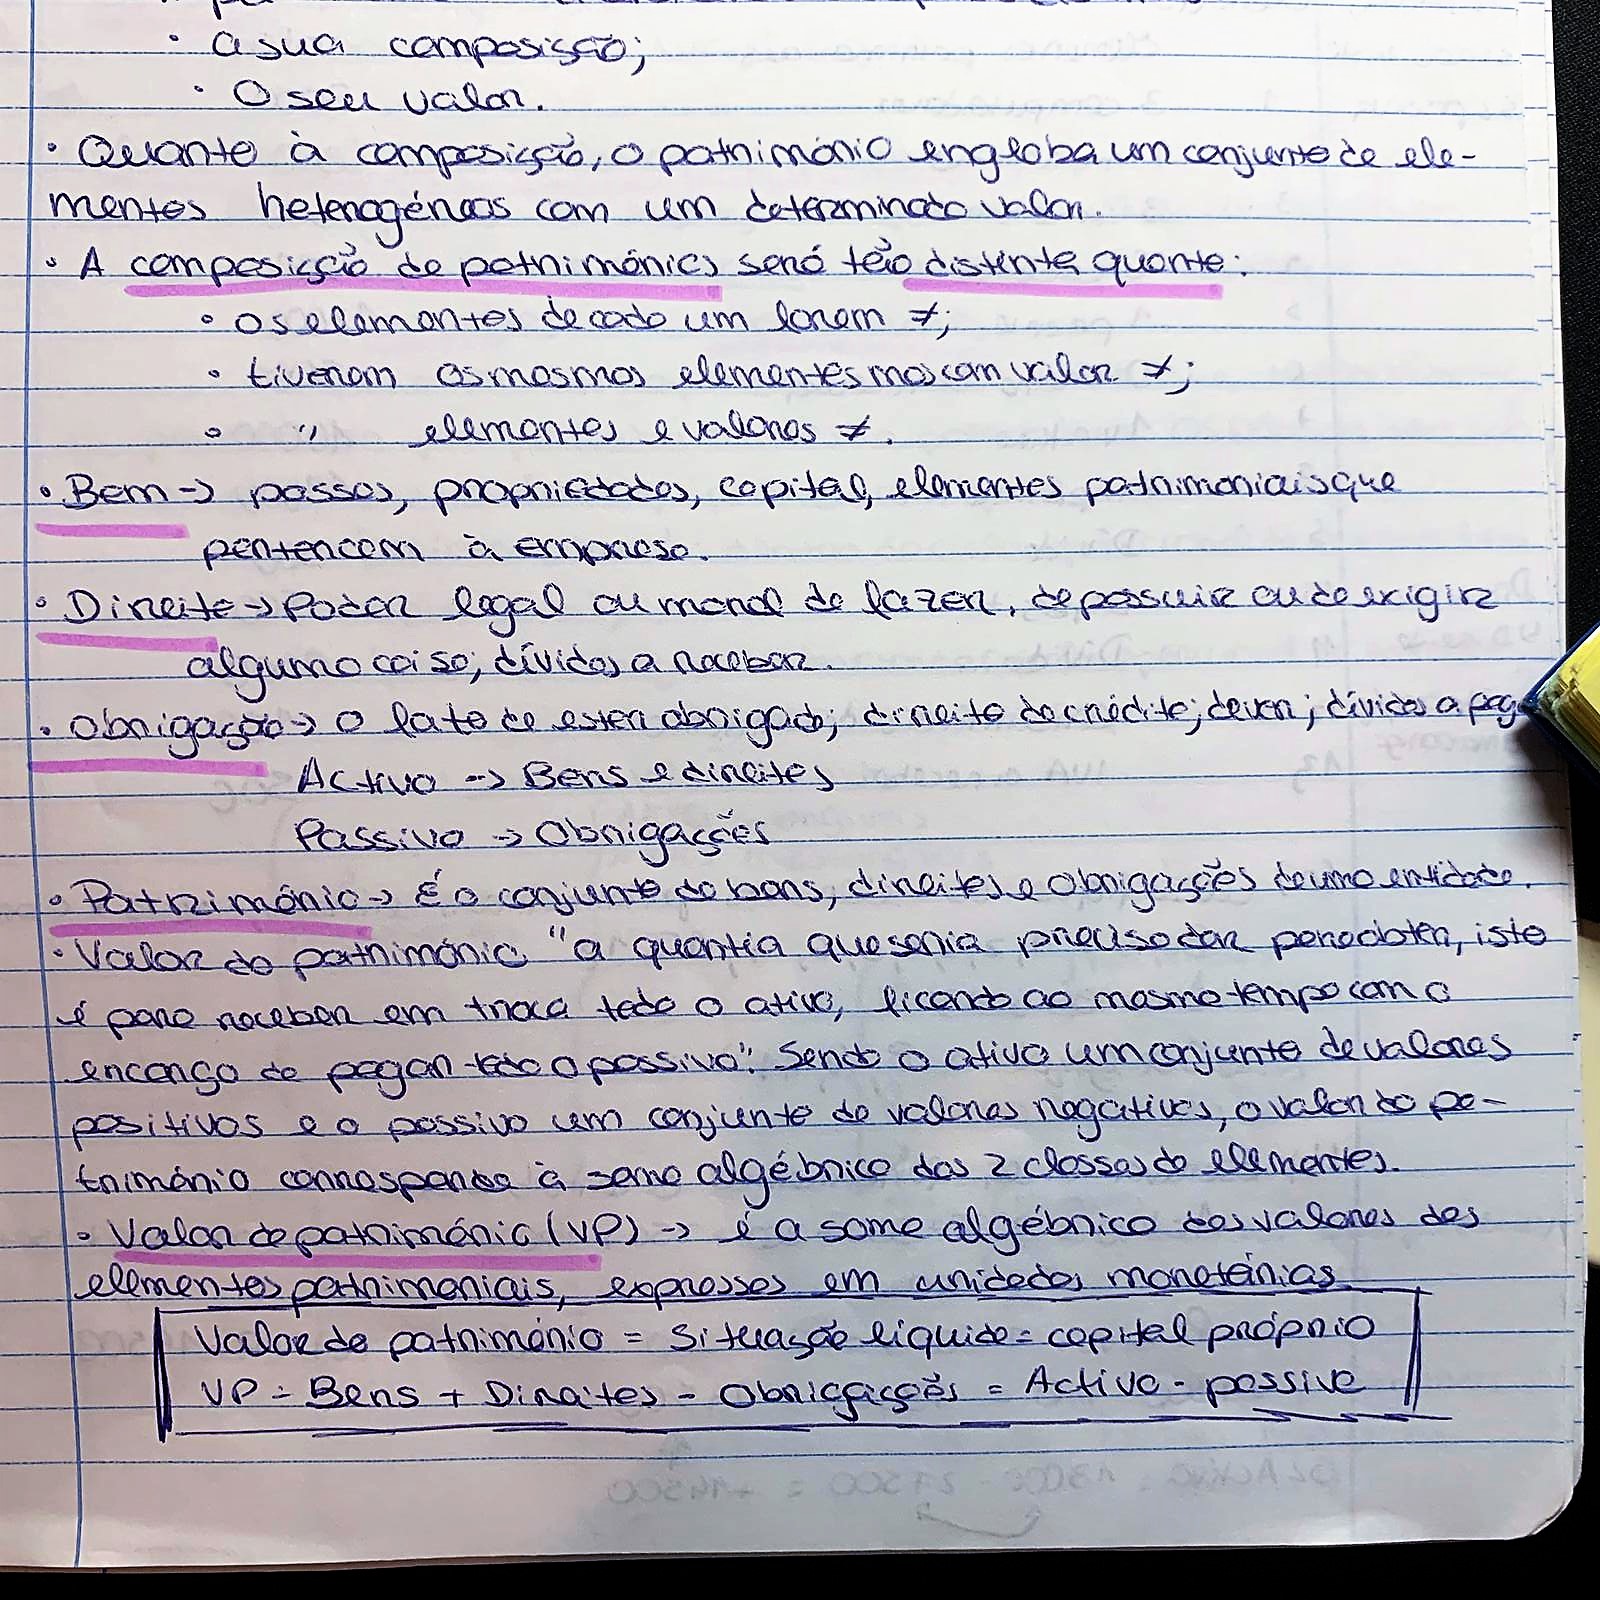 • a sua composição;
• O seu valor.
• Quanto à composição, o património engloba um conjunto de ele-
mentos heterogéneos com um determinado valor.
• A composição do património será tão distinta quanto:
• os elementos de cada um forem ≠;
• tiverem os mesmos elementos mas com valor ≠;
• " elementos e valores ≠.
• Bem -> posses, propriedades, capital, elementos patrimoniais que
pertencem à empresa.
• Direito -> Poder legal ou moral de fazer, de possuir ou de exigir
alguma coisa; dívidas a receber.
• Obrigação -> o fato de estar obrigado; direito de crédito; dever; dívidas a pag
Activo -> Bens e direitos
Passivo -> Obrigações
• Património -> É o conjunto de bens, direitos e obrigações de uma entidade.
• Valor do património "a quantia que seria preciso dar para obter, isto
é para receber em troca todo o ativo, ficando ao mesmo tempo com o
encargo de pagar todo o passivo". Sendo o ativo um conjunto de valores
positivos e o passivo um conjunto de valores negativos, o valor do pa-
trimónio corresponde à soma algébrica das 2 classes de elementos.
• Valor do património (VP) -> é a soma algébrica dos valores dos
elementos patrimoniais, expressos em unidades monetárias.
Valor do património = Situação líquida = capital próprio
VP = Bens + Direitos - Obrigações = Activo - passivo